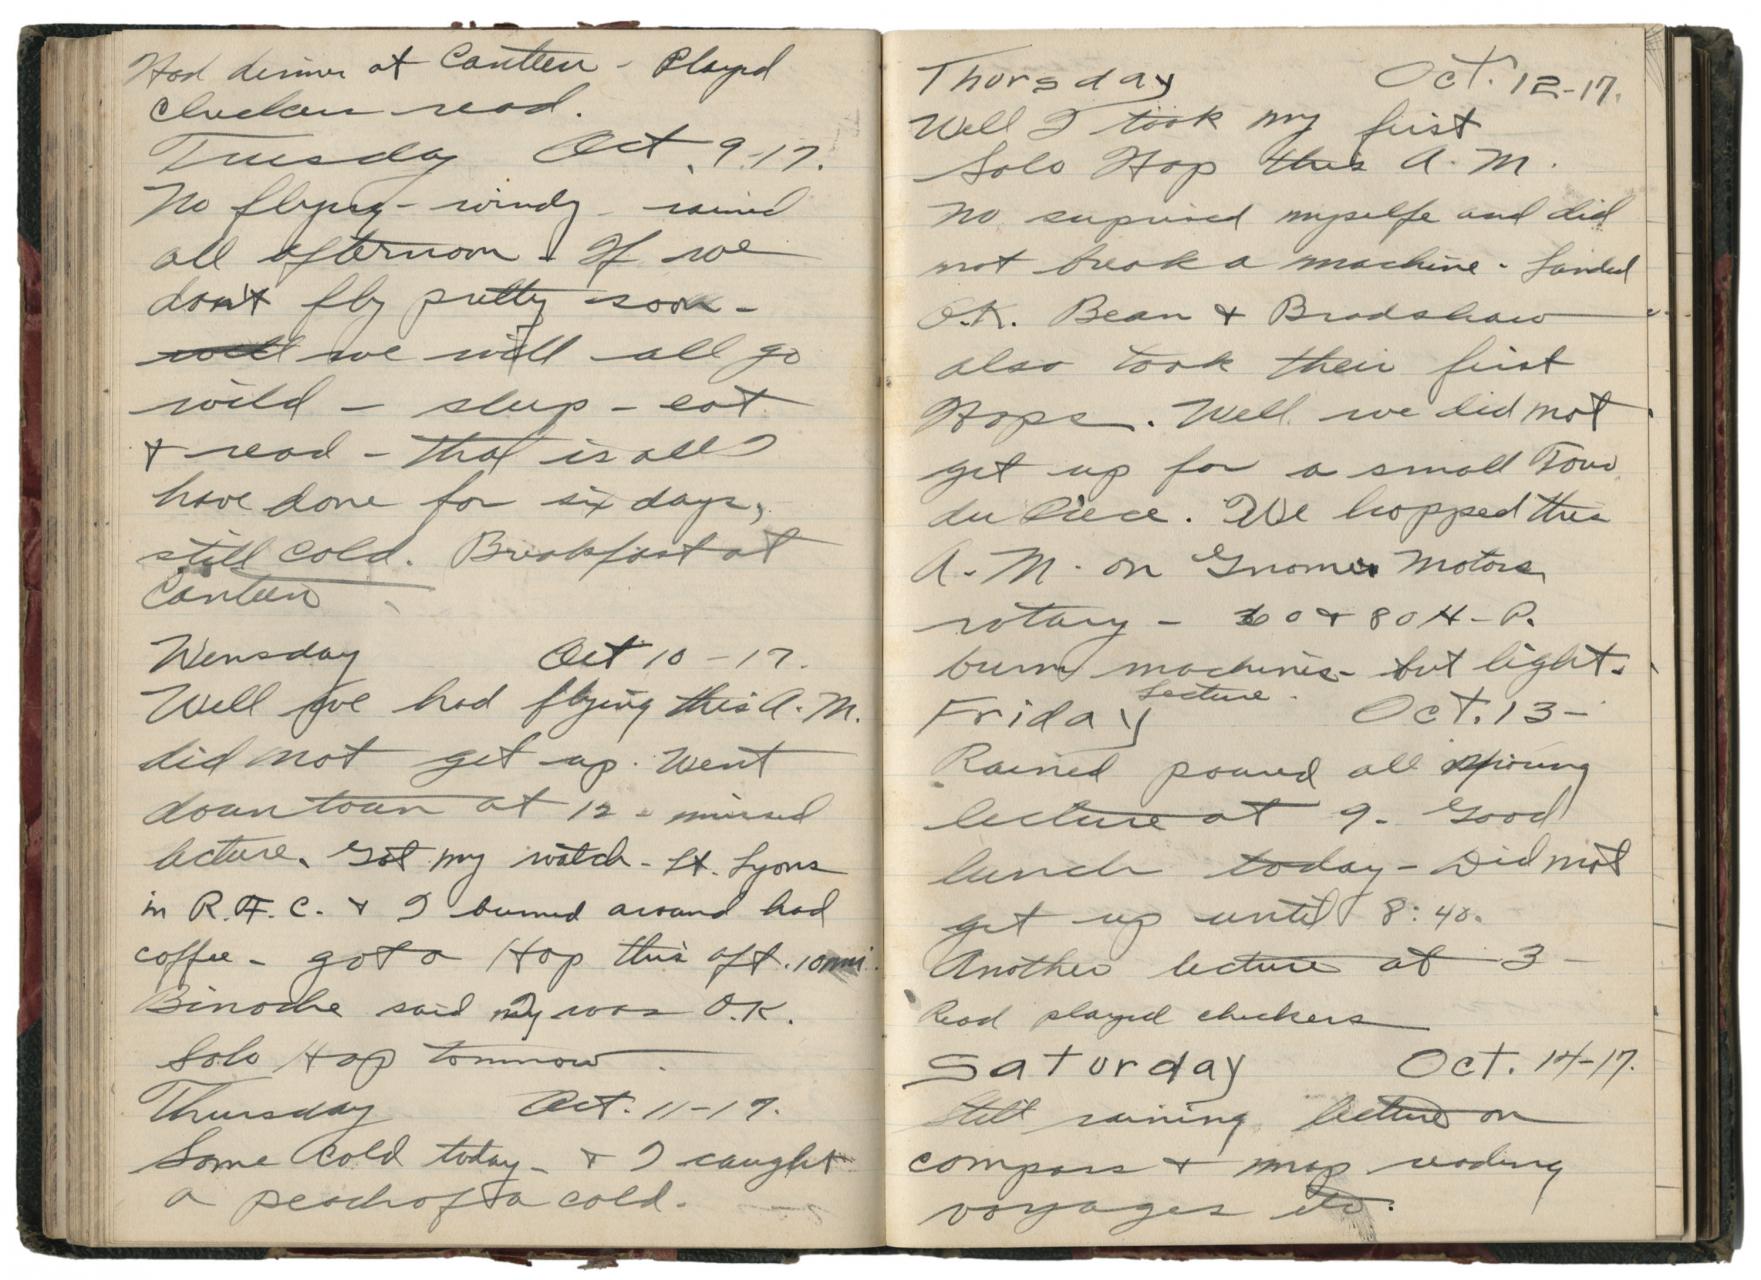 Had dinner at Canteen - Played
checkers read.
Tuesday Oct. 9-17.
No flying - windy - rained
all afternoon. If we
don't fly pretty soon -
we will all go
wild - sleep - eat
& read - that is all I
have done for six days,
still cold. Breakfast at
Canteen
Wensday Oct 10-17.
Well we had flying this A.M.
did not get up. Went
down town at 12 - missed
lecture. Got my watch - Lt. Lyons
in R.F.C. & I bumed around had
coffee - got a Hop this aft. 10 min.
Binoche said I was O.K.
Solo Hop tomorrow.
Thursday Oct. 11-17.
Some cold today - & I caught
a peach of a cold.
Thorsday Oct. 12-17.
Well I took my first
Solo Hop this A.M.
No suprised myselfe and did
not break a machine - Landed
O.K. Bean & Bradshaw
also took their first
Hops. Well we did not
get up for a small Tour
du Piece. We hopped this
A.M. on Gnome Motors
rotary - 60 & 80 H-P.
bum machines - but light.
lecture.
Friday Oct. 13-
Rained poured all
lecture at 9. Good
lunch today - Did not
get up until 8:40.
Another lecture at 3-
Read played checkers
Saturday Oct. 14-17.
Still raining lecture on
compass & map reading
voyages etc.